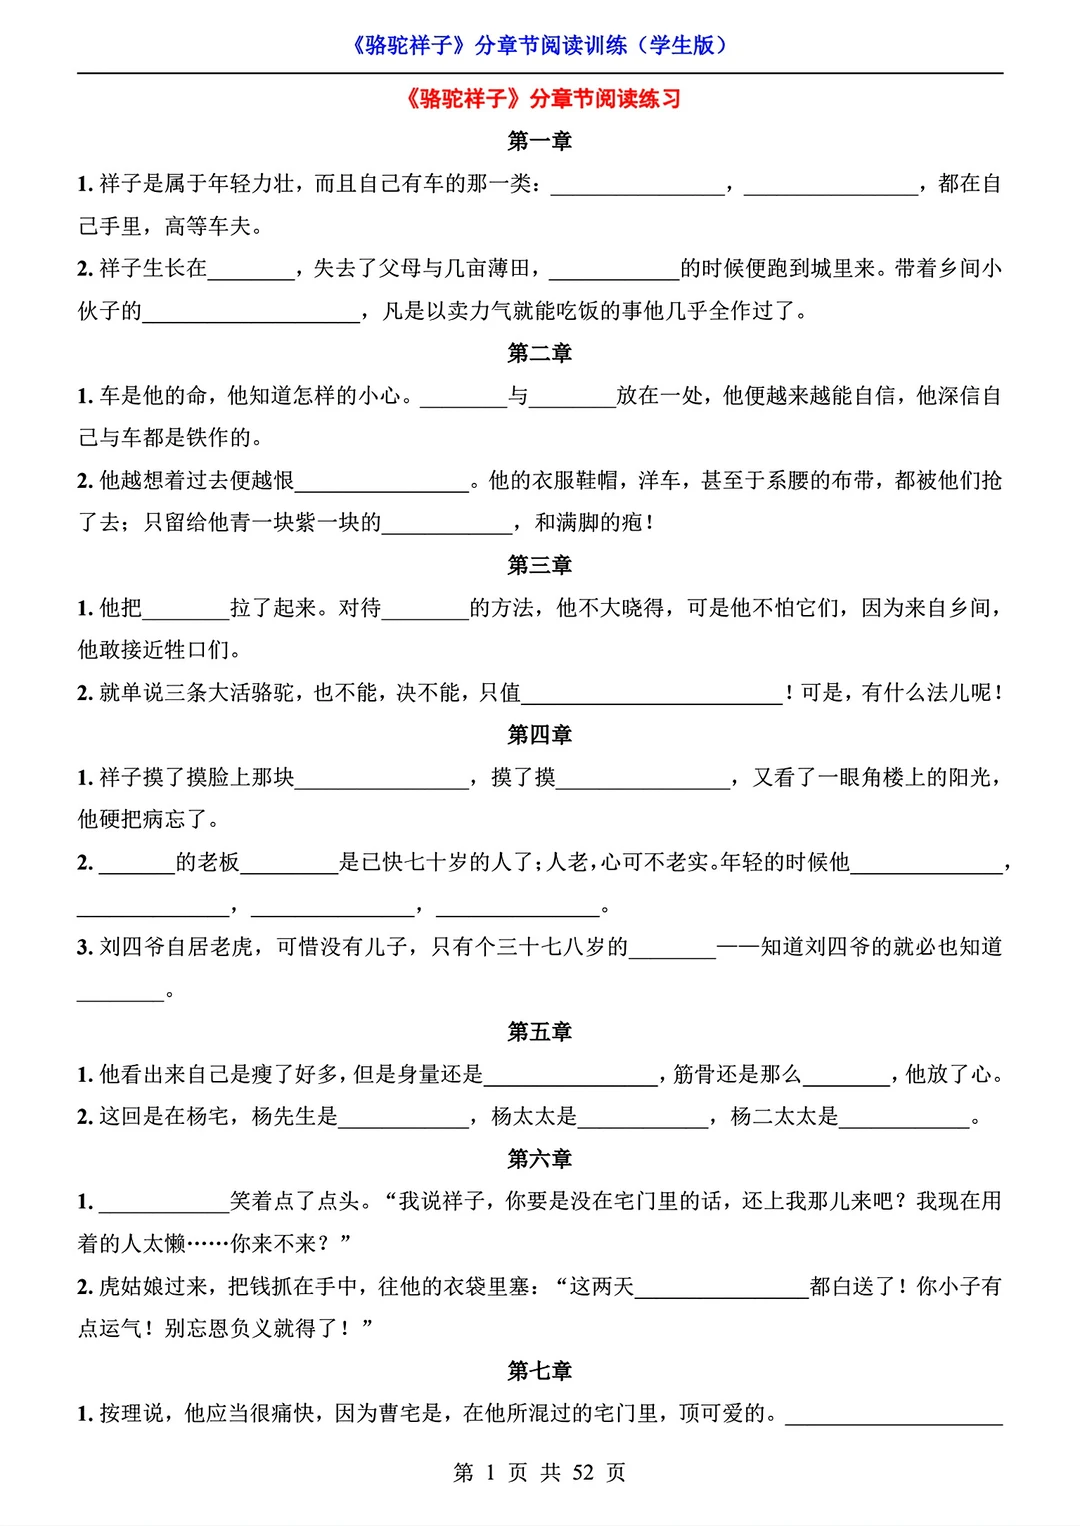 《骆驼祥子》分章节阅读训练（学生版）
《骆驼祥子》分章节阅读练习
第一章
1. 祥子是属于年轻力壮，而且自己有车的那一类：________________，________________，都在自
己手里，高等车夫。
2. 祥子生长在________，失去了父母与几亩薄田，____________的时候便跑到城里来。带着乡间小
伙子的____________________，凡是以卖力气就能吃饭的事他几乎全作过了。
第二章
1. 车是他的命，他知道怎样的小心。________与________放在一处，他便越来越能自信，他深信自
己与车都是铁作的。
2. 他越想着过去便越恨________________。他的衣服鞋帽，洋车，甚至于系腰的布带，都被他们抢
了去；只留给他青一块紫一块的____________，和满脚的疱！
第三章
1. 他把________拉了起来。对待________的方法，他不大晓得，可是他不怕它们，因为来自乡间，
他敢接近牲口们。
2. 就单说三条大活骆驼，也不能，决不能，只值________________________！可是，有什么法儿呢！
第四章
1. 祥子摸了摸脸上那块________________，摸了摸________________，又看了一眼角楼上的阳光，
他硬把病忘了。
2. _______的老板_________是已快七十岁的人了；人老，心可不老实。年轻的时候他______________，
______________，_______________，_______________。
3. 刘四爷自居老虎，可惜没有儿子，只有个三十七八岁的________——知道刘四爷的就必也知道
________。
第五章
1. 他看出来自己是瘦了好多，但是身量还是________________，筋骨还是那么________，他放了心。
2. 这回是在杨宅，杨先生是____________，杨太太是____________，杨二太太是____________。
第六章
1. ____________笑着点了点头。“我说祥子，你要是没在宅门里的话，还上我那儿来吧？我现在用
着的人太懒……你来不来？”
2. 虎姑娘过来，把钱抓在手中，往他的衣袋里塞：“这两天________________都白送了！你小子有
点运气！别忘恩负义就得了！”
第七章
1. 按理说，他应当很痛快，因为曹宅是，在他所混过的宅门里，顶可爱的。____________________
第 1 页 共 52 页